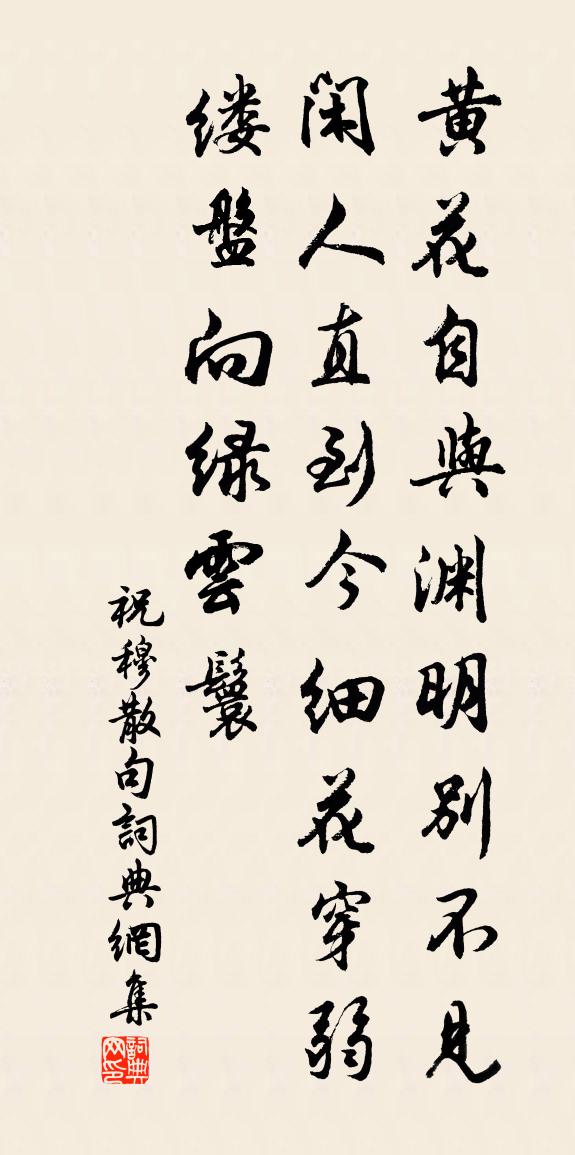 黄花自與渊明别不見
閑人直到今细花穿弱
缕盤向绿雲鬟
祝穆散句詞典網集
詞典网印